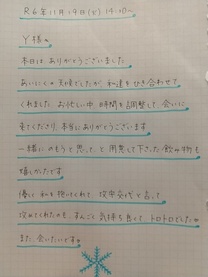 R6年11月19日(火) 14:30〜
Y様へ
本日は、ありがとうございました
あいにくの天候でしたが、私達をひき合わせて
くれました お忙しい中 時間を調整して、会いに
来てくださり、本当にありがとうございます
一緒にのもうと思って、と用意して下さった飲み物も
嬉しかったです
優しく私を抱いてくれて、攻守交代と言って
攻めてくれたのも、すんごく気持ち良くて、トロトロでした
また、会いたいです